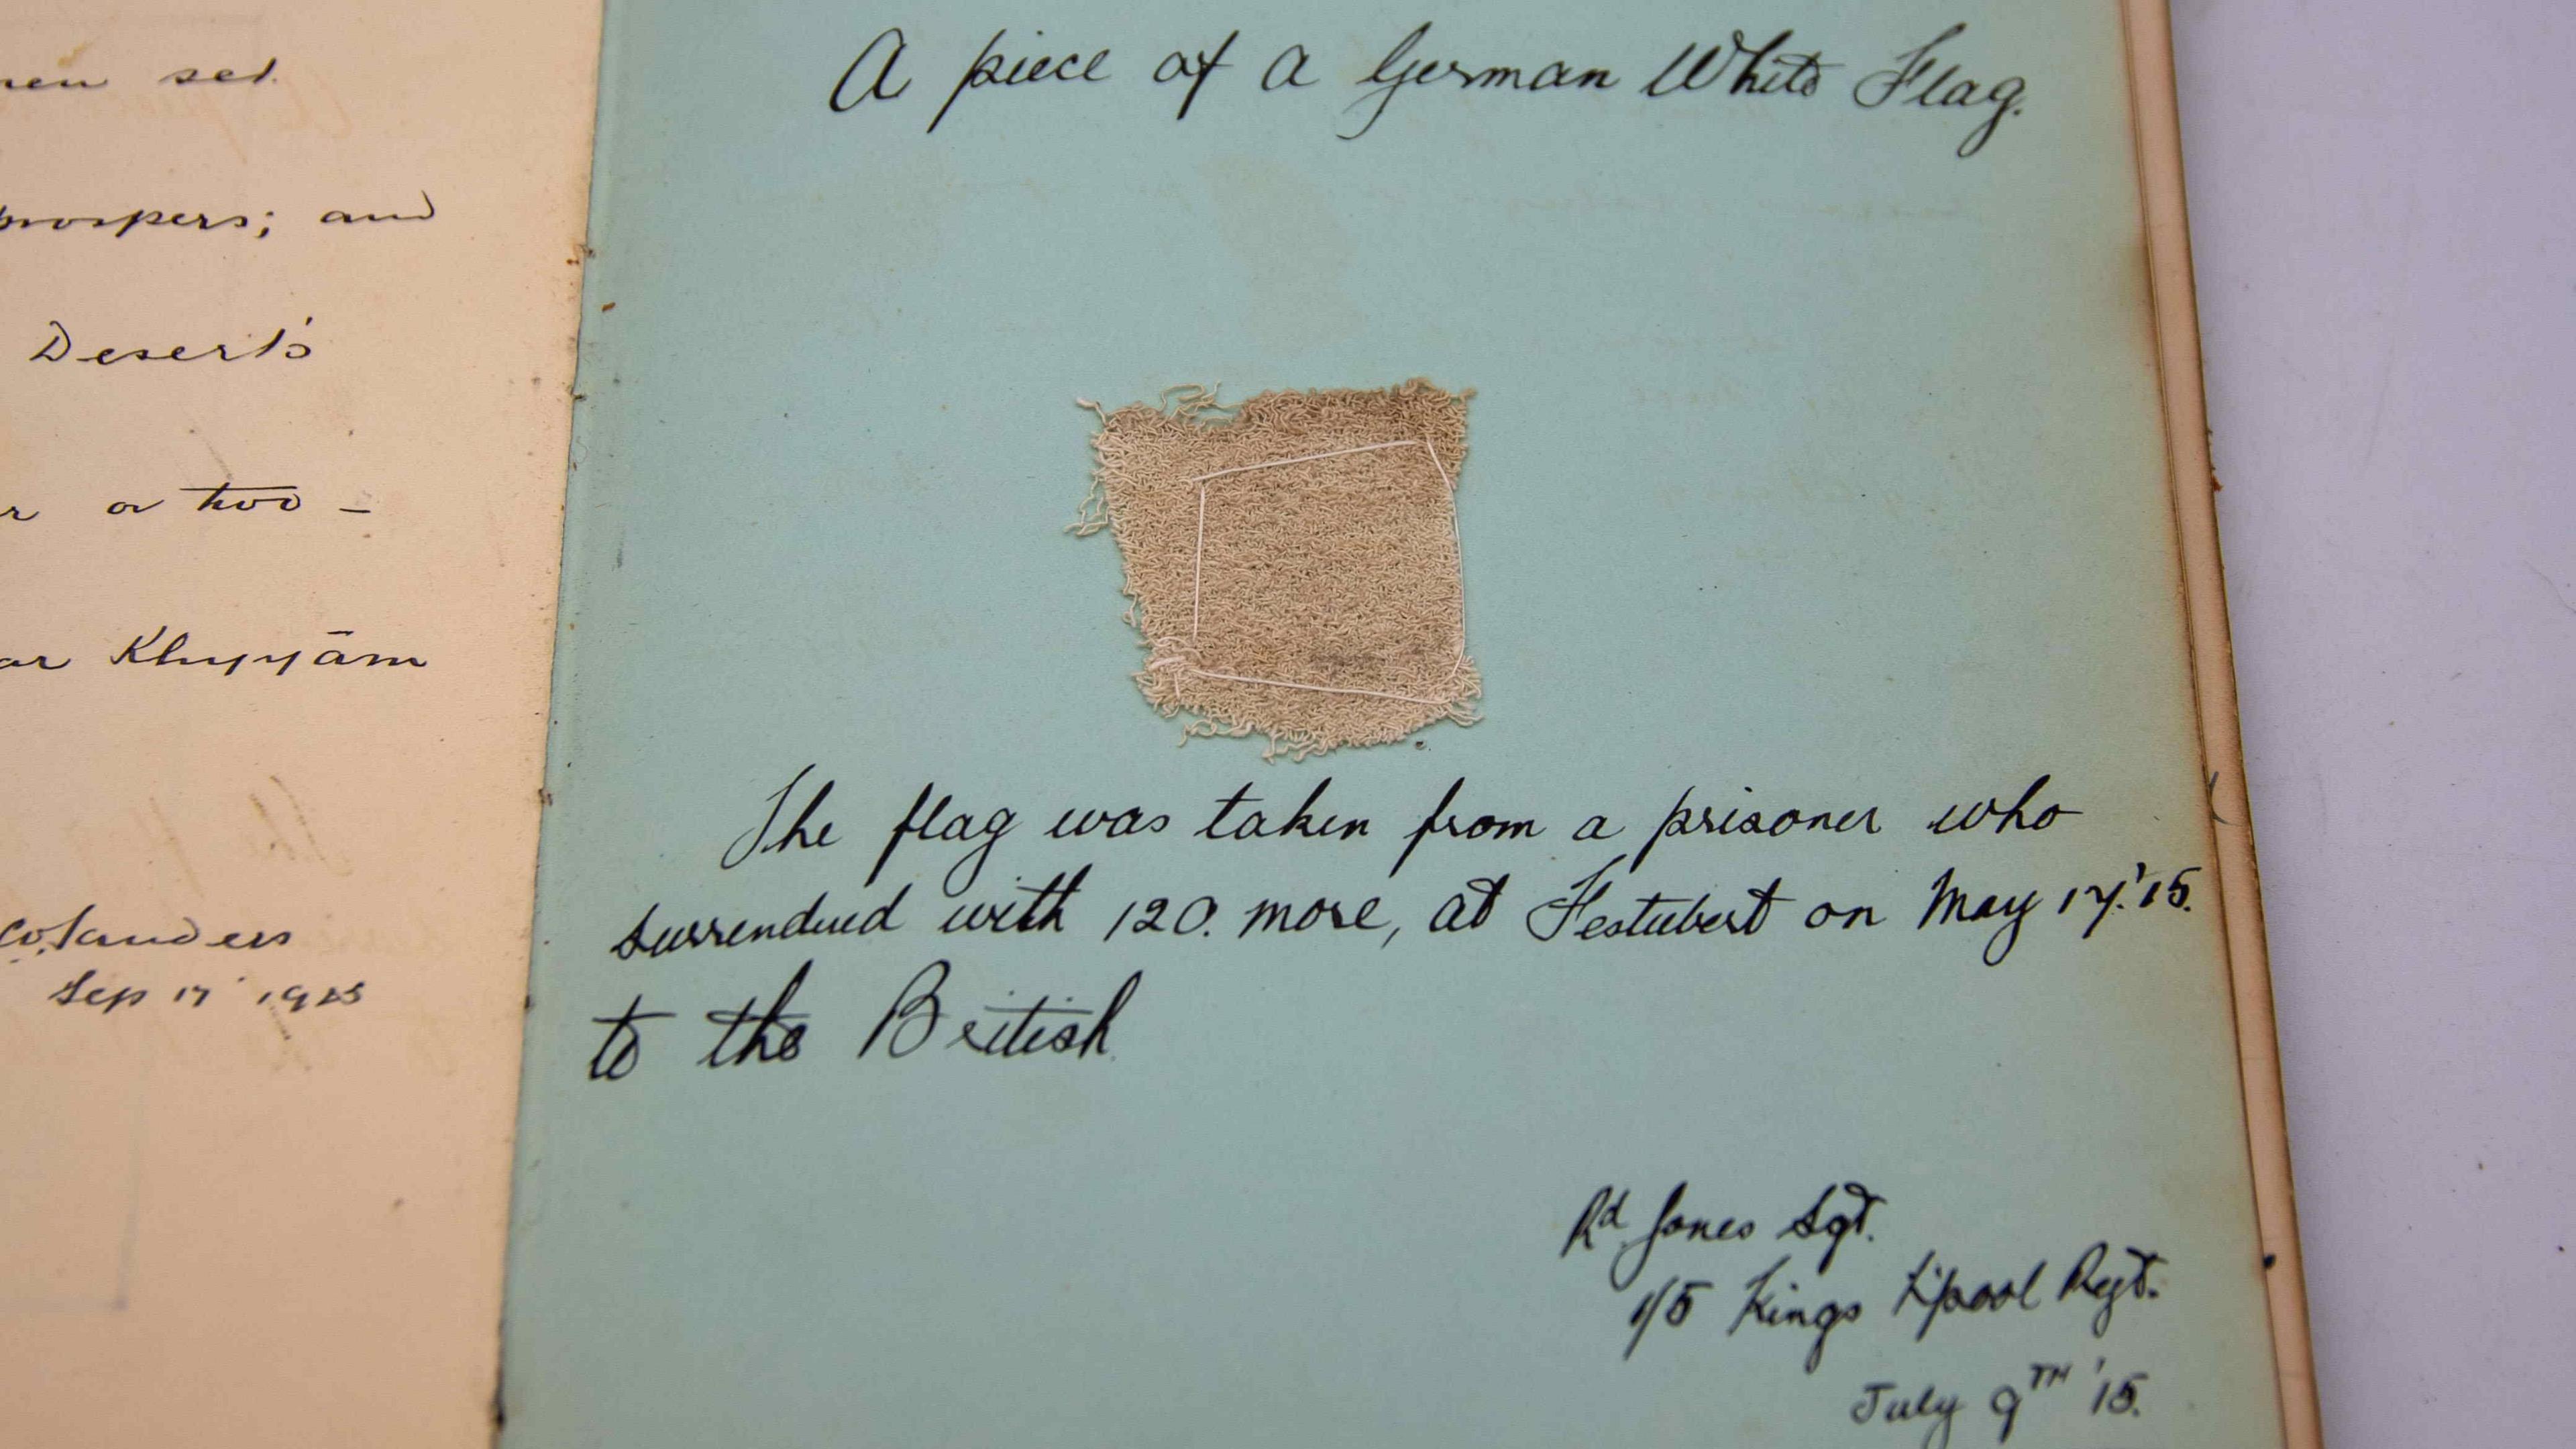 set.
prospers; and
Desert's
or two -
Khayyām
Sep 17 1925
A piece of a German White Flag.
The flag was taken from a prisoner who
surrendued with 120. more, at Festubert on May 17.'15.
to the British
Rd. Jones Sgt.
1/5 Kings L'pool Regt.
July 9TH '15.